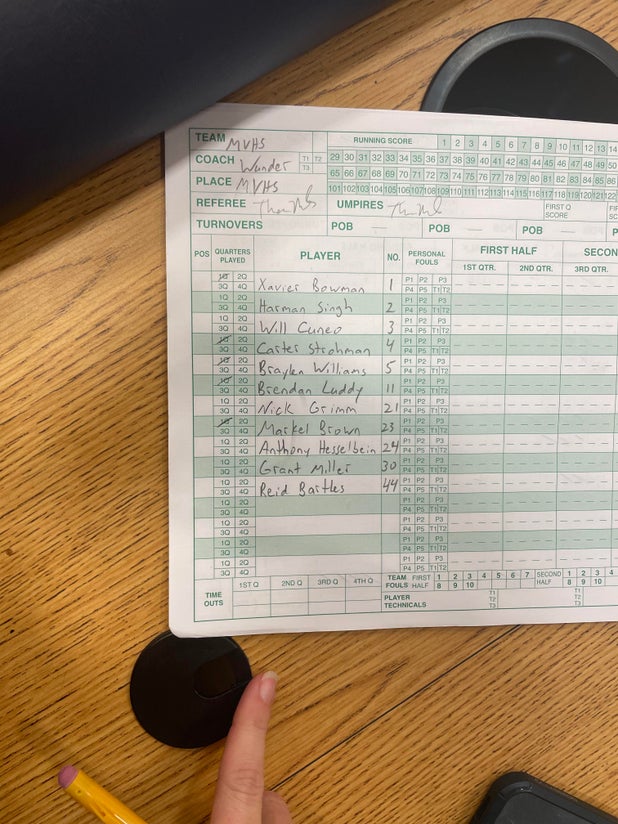 TEAM MVHS RUNNING SCORE 1 2 3 4 5 6 7 8 9 10 11 12 13 14
COACH Wunder T1 T2 T3 29 30 31 32 33 34 35 36 37 38 39 40 41 42 43 44 45 46 47 48 49 50
65 66 67 68 69 70 71 72 73 74 75 76 77 78 79 80 81 82 83 84 85 86
PLACE MVHS 101 102 103 104 105 106 107 108 109 110 111 112 113 114 115 116 117 118 119 120 121 122
REFEREE UMPIRES FIRST Q SCORE
TURNOVERS POB — POB — POB
POS QUARTERS PLAYED PLAYER NO. PERSONAL FOULS FIRST HALF SECON
1ST QTR. 2ND QTR. 3RD QTR.
1Q 2Q 3Q 4Q Xavier Bowman 1 P1 P2 P3 P4 P5 T1 T2
1Q 2Q 3Q 4Q Harman Singh 2 P1 P2 P3 P4 P5 T1 T2
1Q 2Q 3Q 4Q Will Cuneo 3 P1 P2 P3 P4 P5 T1 T2
1Q 2Q 3Q 4Q Carter Strohman 4 P1 P2 P3 P4 P5 T1 T2
1Q 2Q 3Q 4Q Braylen Williams 5 P1 P2 P3 P4 P5 T1 T2
1Q 2Q 3Q 4Q Brendan Luddy 11 P1 P2 P3 P4 P5 T1 T2
1Q 2Q 3Q 4Q Nick Grimm 21 P1 P2 P3 P4 P5 T1 T2
1Q 2Q 3Q 4Q Markel Brown 23 P1 P2 P3 P4 P5 T1 T2
1Q 2Q 3Q 4Q Anthony Hesselbein 24 P1 P2 P3 P4 P5 T1 T2
1Q 2Q 3Q 4Q Grant Miller 30 P1 P2 P3 P4 P5 T1 T2
1Q 2Q 3Q 4Q Reid Bartles 44 P1 P2 P3 P4 P5 T1 T2
1Q 2Q 3Q 4Q P1 P2 P3 P4 P5 T1 T2
1Q 2Q 3Q 4Q P1 P2 P3 P4 P5 T1 T2
1Q 2Q 3Q 4Q P1 P2 P3 P4 P5 T1 T2
1Q 2Q 3Q 4Q P1 P2 P3 P4 P5 T1 T2
TIME OUTS 1ST Q 2ND Q 3RD Q 4TH Q TEAM FOULS FIRST HALF 1 2 3 4 5 6 7 8 9 10 SECOND HALF 1 2 3 4 8 9 10
PLAYER TECHNICALS T1 T2 T3 T1 T2 T3